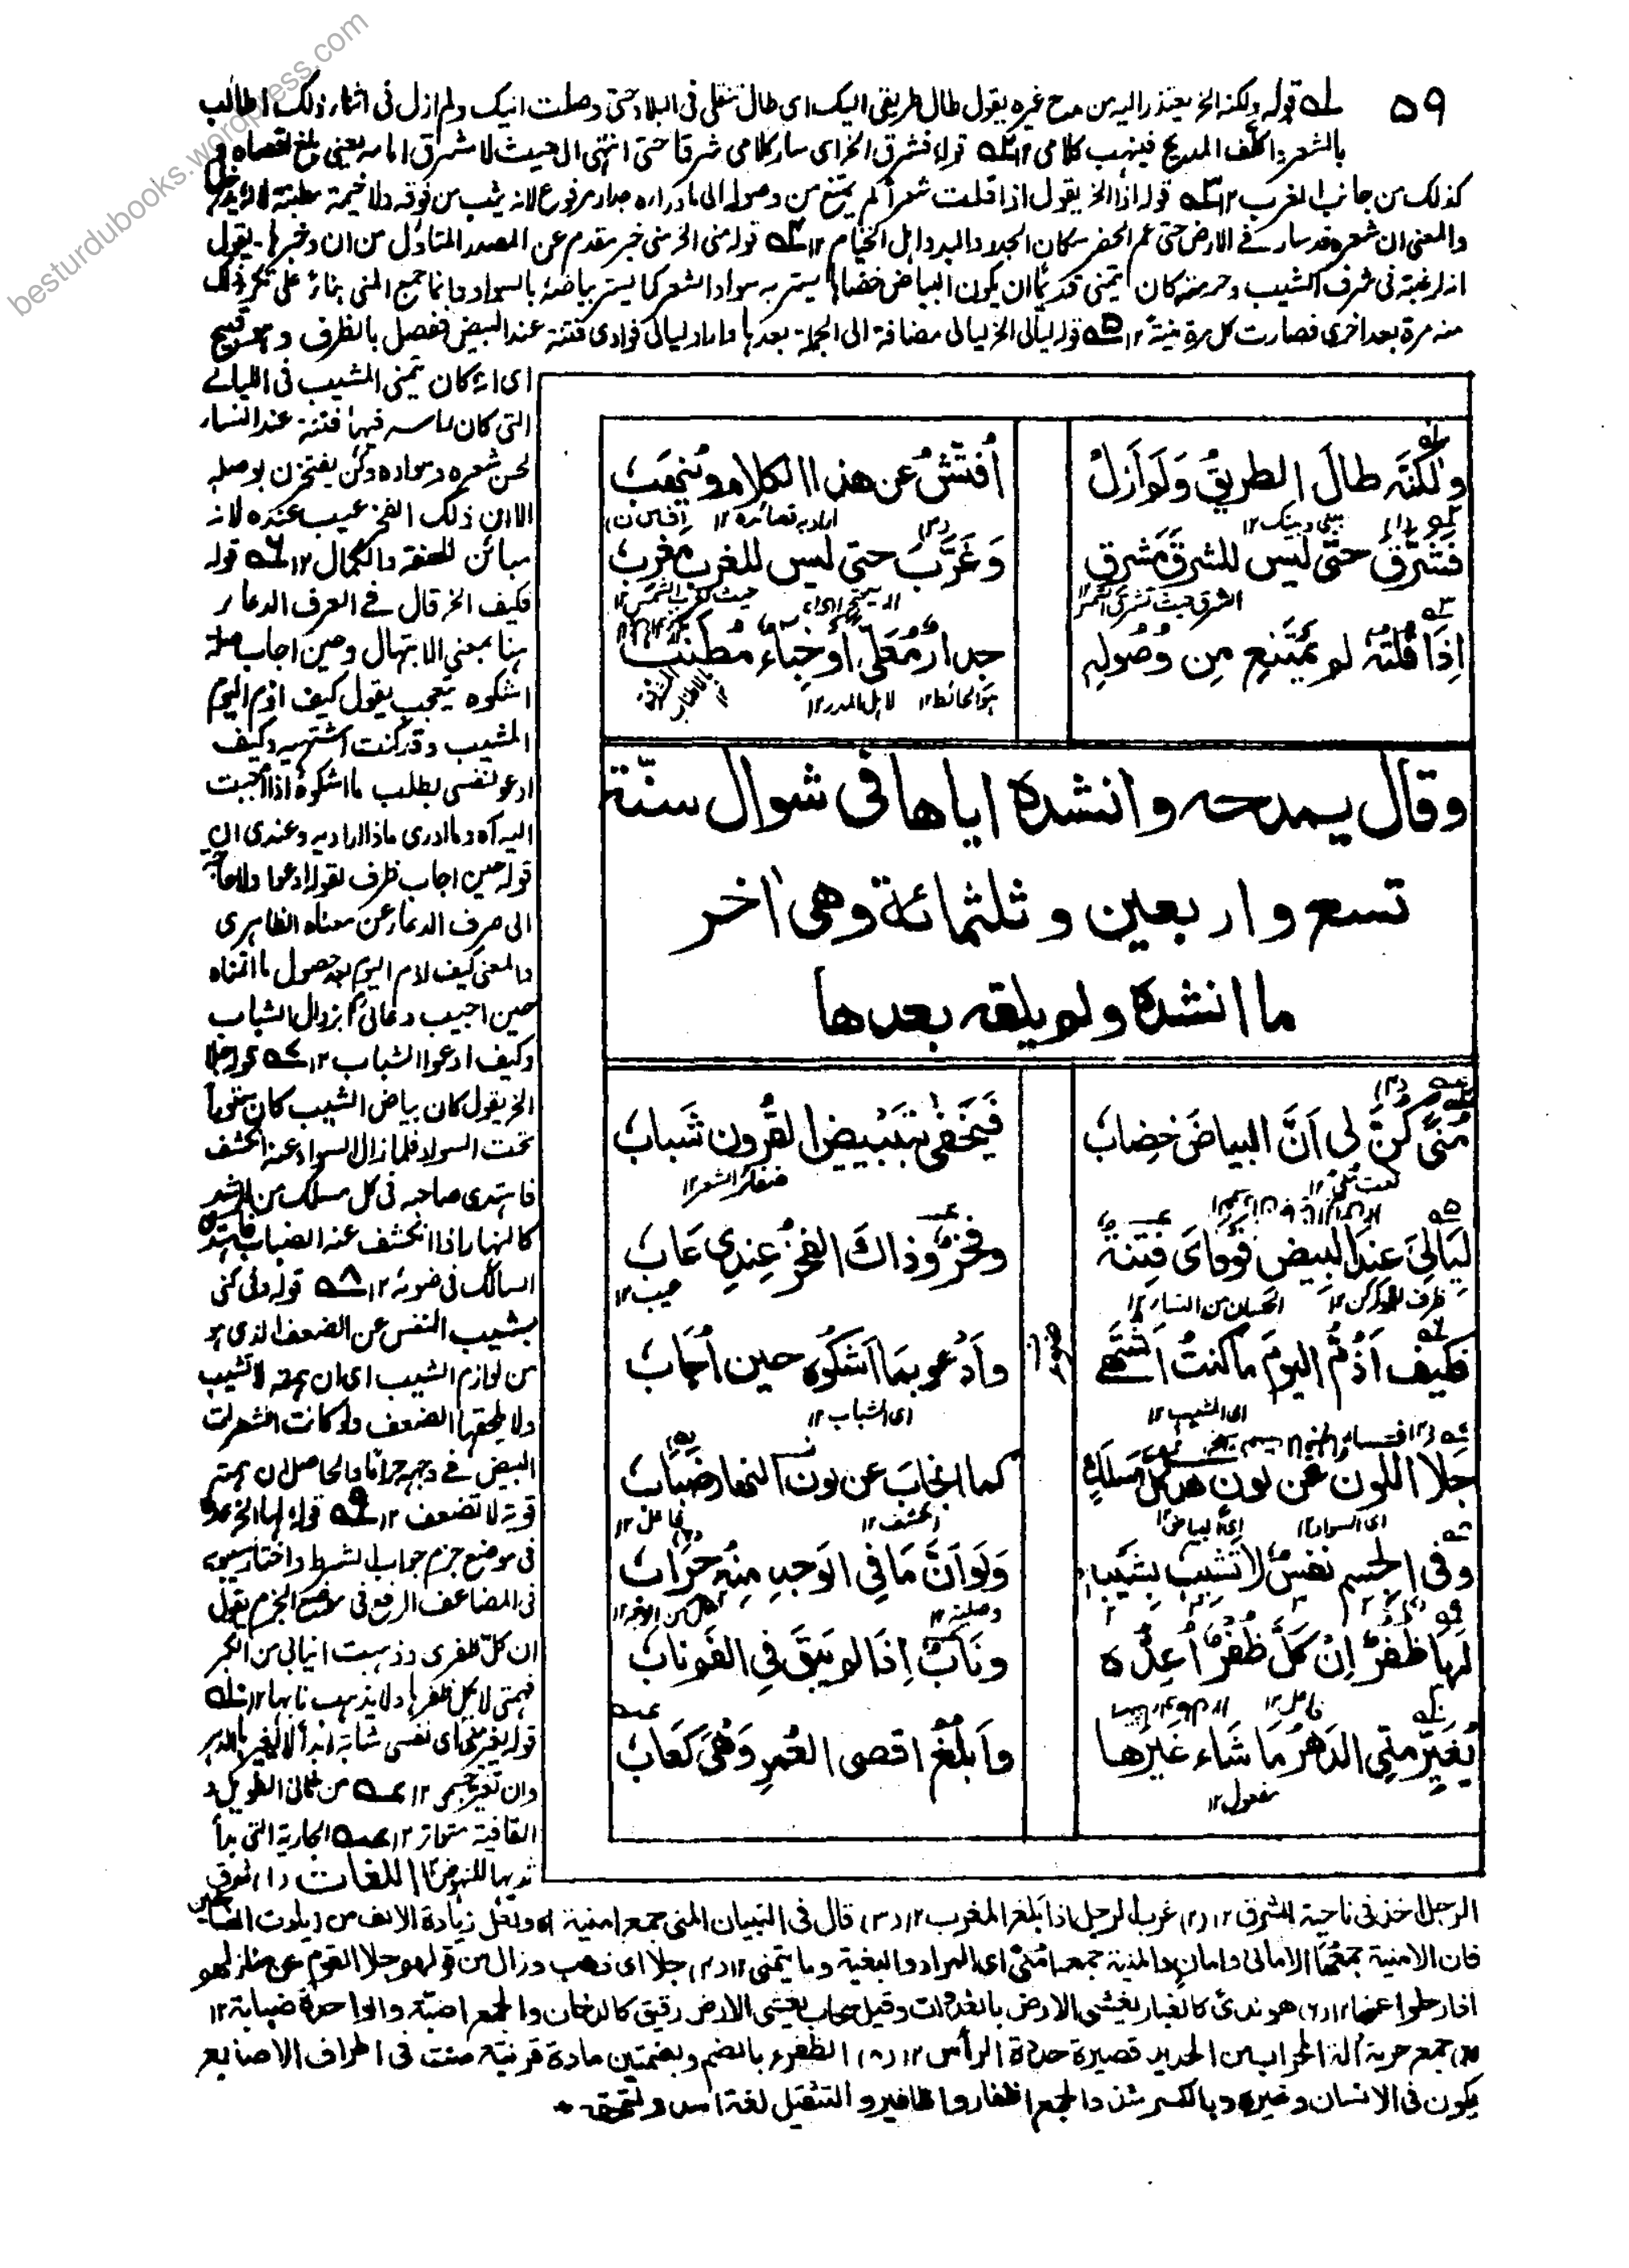 besturdubooks.wordpress.com
٥٩
له قوله ولكنه الخ يعتذر اليه من مدح غيره يقول طال طريقي اليك اى طال تنقلى فى البلاد حتى وصلت اليك ولم ازل فى اثناء ذلك اطالب
بالشعر واكلف المديح فينهب كلامى ١٢ قوله فشرق الخ اى سار كلامى شرقا حتى انتهى الى حيث لا شرق امامه يعنى بلغ اقصاه
كذلك من جانب الغرب ١٢ قوله اذا الخ يقول اذا قلت شعرا لم يمتنع من وصوله الى ما وراءه جدار مرفوع لانه يثب من فوقه ولا خيمة
والمعنى ان شعره قد سار فى الارض حتى عم الحضر سكان البلاد والبدو اهل الخيام ١٢ قوله منى الخ منى خبر مقدم عن المصدر المتاول من ان وخبرها يقول
انه لرغبته فى شرف الشيب وحرمته كان يتمنى قديما ان يكون البياض خضابا يستر به سواد الشعر كما يستر بياضه بالسواد وانما جمع المنى بناء على تكرر ذلك
منه مرة بعد اخرى فصارت كل مرة منية ١٢ قوله ليالى الخ ليالى مضافة الى الجملة بعدها واراد ليالى فوداى فتنة عند البيض ففصل بالظرف وهو قبيح
اى انه كان يتمنى المشيب فى الليالى
التى كان راسه فيها فتنة عند النساء
لحسن شعره وسواده وكن يفتخرن بوصله
الا ان ذلك الفخر عيب عنده لانه
مبائن للعفة والكمال ١٢ قوله
فكيف الخ قال فى العرف الدعاء
هنا بمعنى الابتهال وحين اجاب صلة
اشكوه يتعجب يقول كيف اذم اليوم
المشيب وقد كنت اشتهيه وكيف
ادعو لنفسى بطلب ما اشكوه اذا اجبت
اليه اه وما ادرى ماذا اراد به وعندى ان
قوله حين اجاب ظرف لقوله ادعو ولا حاجة
الى صرف الدعاء عن معناه الظاهرى
والمعنى كيف اذم اليوم بعد حصول ما اتمناه
حين اجيب دعائى بزوال الشباب
وكيف ادعوا الشباب ١٢ قوله جلا
الخ يقول كان بياض الشيب كان مخفيا
تحت السواد فلما زال السواد عنه انكشف
فاهتدى صاحبه فى كل مسلك من الرشد
كالنهار اذا انكشف عنه الضباب فاهتدى
السالك فى ضوئه ١٢ قوله وفى كنى
بشيب النفس عن الضعف الذى هو
من لوازم الشيب اى ان همته لا تشيب
ولا يلحقها الضعف ولو كانت الشعرات
البيض فى وجهه حرابا والحاصل ان همته
قوية لا تضعف ١٢ قوله لها الخ
فى موضع جزم جواب الشرط واختار سيبويه
فى المضاعف الرفع فى موضع الجزم يقول
ان كل ظفرى وذهبت انيابى من الكبر
فهمتى لا يكل ظفرها ولا يذهب نابها ١٢
قوله يغير منى اى نفسى شابة ابدا لا يغير بالدهر
وان تغير جسمى ١٢ من ثانى الطويل و
القافية متواتر ١٢ الجارية التى بدأ
ثديها للنهوض ١٢ اللغات (١) شرق
وَلٰكنَّه طالَ الطريقُ وَلَم اَزَلْ اُفَتِّشُ عن هذا الكلام ويُنهَبُ
بينى وبينك ١٢ اراد به قصائده ١٢
فَشَرَّقَ حتّى ليس للشرق مَشرِق وَغَرَّبَ حتى ليس للغرب مَغرِبُ
اِذَا قُلتُه لم يَمتَنِع مِن وُصُولِهِ جِدارٌ مُعَلّى اَو خِباءٌ مُطَنَّبُ
هو الحائط ١٢ لاهل المدر ١٢
وقال يمدحه وانشده اياها فى شوال سنّة
تسع واربعين وثلثمائة وهى اٰخر
ما انشده ولم يلقه بعدها
مُنىً كُنَّ لى اَنَّ البياضَ خِضابُ فَيَخفى بتَبييضِ القُرون شَبابُ
ضفائر الشعر ١٢
لَيالِىَ عندَ البِيضِ فَودَاىَ فِتنَةٌ وفخرٌ وذاكَ الفخرُ عِندِى عَابُ
الحسان من النساء ١٢ عيب ١٢
فكيف اَذُمُّ اليومَ ما كنتُ اَشتَهى واَدعو بما اَشكوه حين اُجَابُ
اى المشيب ١٢ اى الشباب ١٢
جَلا اللونُ عن لونٍ هدى كلَّ مَسلَكٍ كما انجابَ عن لون النهار ضَبابُ
اى السواد ١٢ اى البياض ١٢ انكشف ١٢ فاعل ١٢
وفى الجسم نفسٌ لا تَشيبُ بشَيبِهِ وَلَو اَنَّ مَا فِى الوَجهِ مِنهُ حِرَابُ
وصلية ١٢
لَها ظُفرٌ اِنْ كَلَّ ظُفرٌ اُعِدُّهُ ونَابٌ اِذَا لم يَبقَ فى الفَمِ نابُ
فاعل ١٢
يُغَيِّرُ مِنِّى الدَهرُ مَا شَاءَ غَيرَها واَبلُغُ اقصى العُمرِ وَهْىَ كَعَابُ
مفعول ١٢
الرجل اخذ فى ناحية الشرق ١٢ (٢) غرب الرجل اذا بلغ المغرب ١٢ (٣) قال فى التبيان المنى جمع امنية اه ولعل زيادة الالف من
فان الامنية جمعها الامانى وامان والمنية جمعها مُنى اى المراد والبغية وما يتمنى ١٢ (٤) جلا اى ذهب وزال من قولهم جلا القوم عن منازلهم
اذا رحلوا عنها ١٢ (٦) هو ندىً كالغبار يغشى الارض بالغدوات وقيل سحاب يغشى الارض رقيق كالدخان والجمع اضبّة والواحدة ضبابة ١٢
(٧) جمع حربة آلة الحراب من الحديد قصيرة حدة الرأس ١٢ (٨) الظفر بالضم وبضمتين مادة قرنية تنبت فى اطراف الاصابع
يكون فى الانسان وغيره وبالكسر شذ والجمع اظفار واظافير والتثقيل لغة